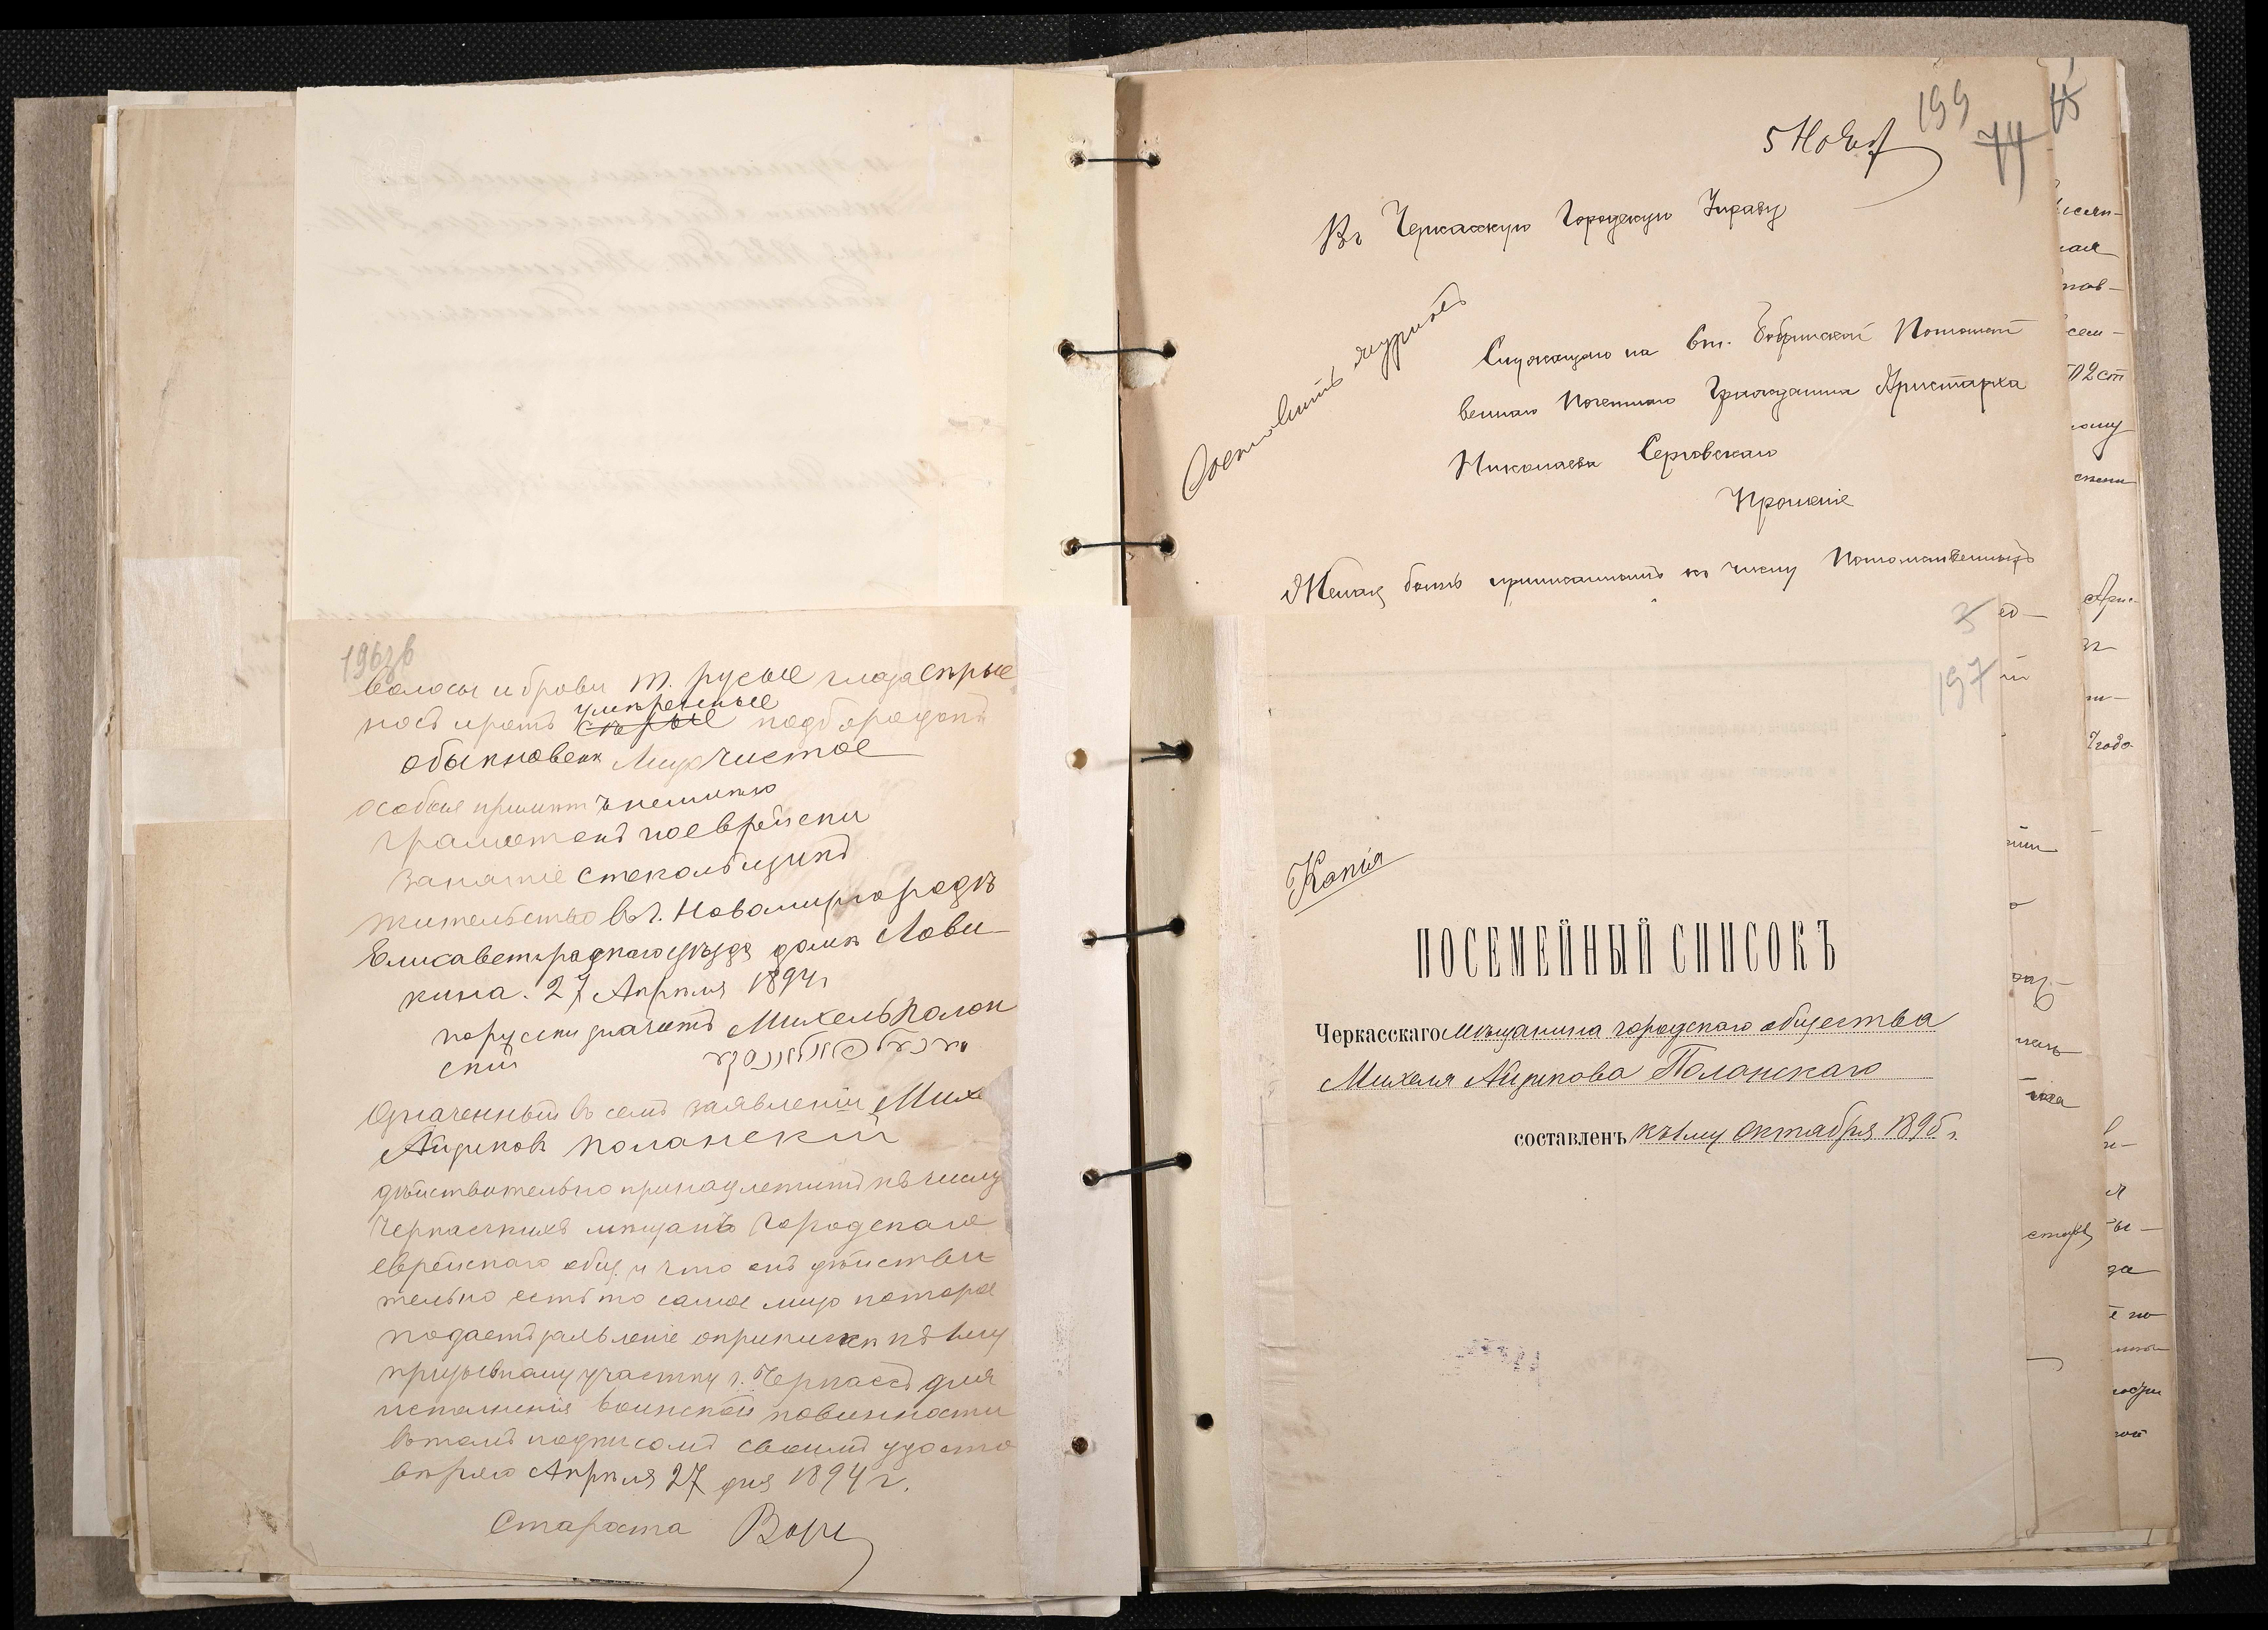 196 об
волосы и брови т. русые глаза сѣрые
носъ и ротъ умѣренные сѣрые подбородокъ
обыкновенн лицо чистое
особые примѣтъ неимѣю
грамотенъ поеврейски
занятіе стекольщикъ
жительство въ г. Новомиргородѣ
Елисаветградскаго уѣзда домъ Лови-
кина. 27 Апрѣля 1894 г
порусски значитъ Михель Полон
скій
Означенный въ семъ заявленіи Мих
Айзиковъ Поланскій
дѣйствительно принадлежитъ къ числу
Черкасскихъ мѣщанъ городскаго
еврейскаго общ. и что онъ дѣйстви
тельно есть то самое лицо которое
подаетъ заявленіе оприпискѣ къ 1му
призывному участку г. Черкассъ для
исполненія воинской повинности
въ томъ подписомъ своимъ удосто
вѣряю Апрѣля 27 дня 1894 г.
Староста
199
74
5 Нояб
Въ Черкасскую Городскую Управу
Составить журналъ
Служащаго на ст. Бобринской Потомст
веннаго Почетнаго Гражданина Аристарха
Николаева Серговскаго
Прошеніе
Желая быть приписаннымъ къ числу Потомственныхъ
3
197
Копія
ПОСЕМЕЙНЫЙ СПИСОКЪ
Черкасскаго мѣщанина городскаго общества
Михеля Айзикова Поланскаго
составленъ къ 1му октября 1895 г.